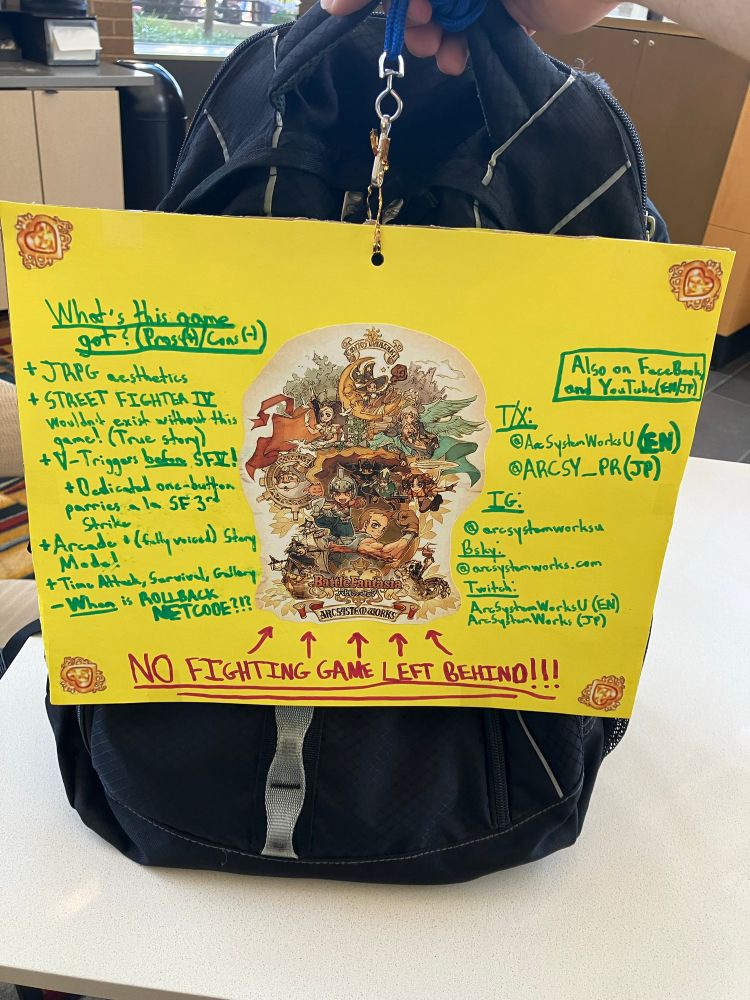 What's this game
got? (Pros(+)/Cons(-)
+ JRPG aesthetics
+ STREET FIGHTER IV
wouldn't exist without this
game! (True story)
+ V-Triggers before SFV!
+ Dedicated one-button
parries a la SF 3rd
Strike
+ Arcade + (fully voiced) Story
Mode!
+ Time Attack, Survival, Gallery
- When is ROLLBACK
NETCODE?!?
BattleFantasia
ARC SYSTEM WORKS
NO FIGHTING GAME LEFT BEHIND!!!
Also on FaceBook
and YouTube (EN/JP)
T/X:
@ArcSystemWorksU (EN)
@ARCSY_PR (JP)
IG:
@arcsystemworksu
Bsky:
@arcsystemworks.com
Twitch:
ArcSystemWorksU (EN)
ArcSystemWorks (JP)